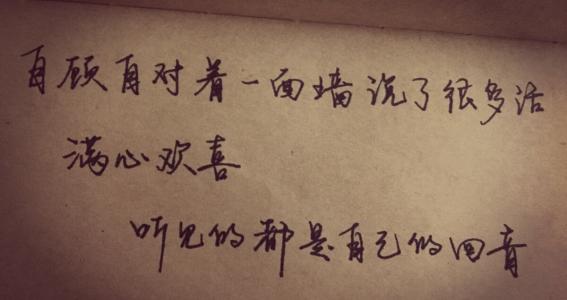 自顾自对着一面墙说了很多话
满心欢喜
听见的都是自己的回音